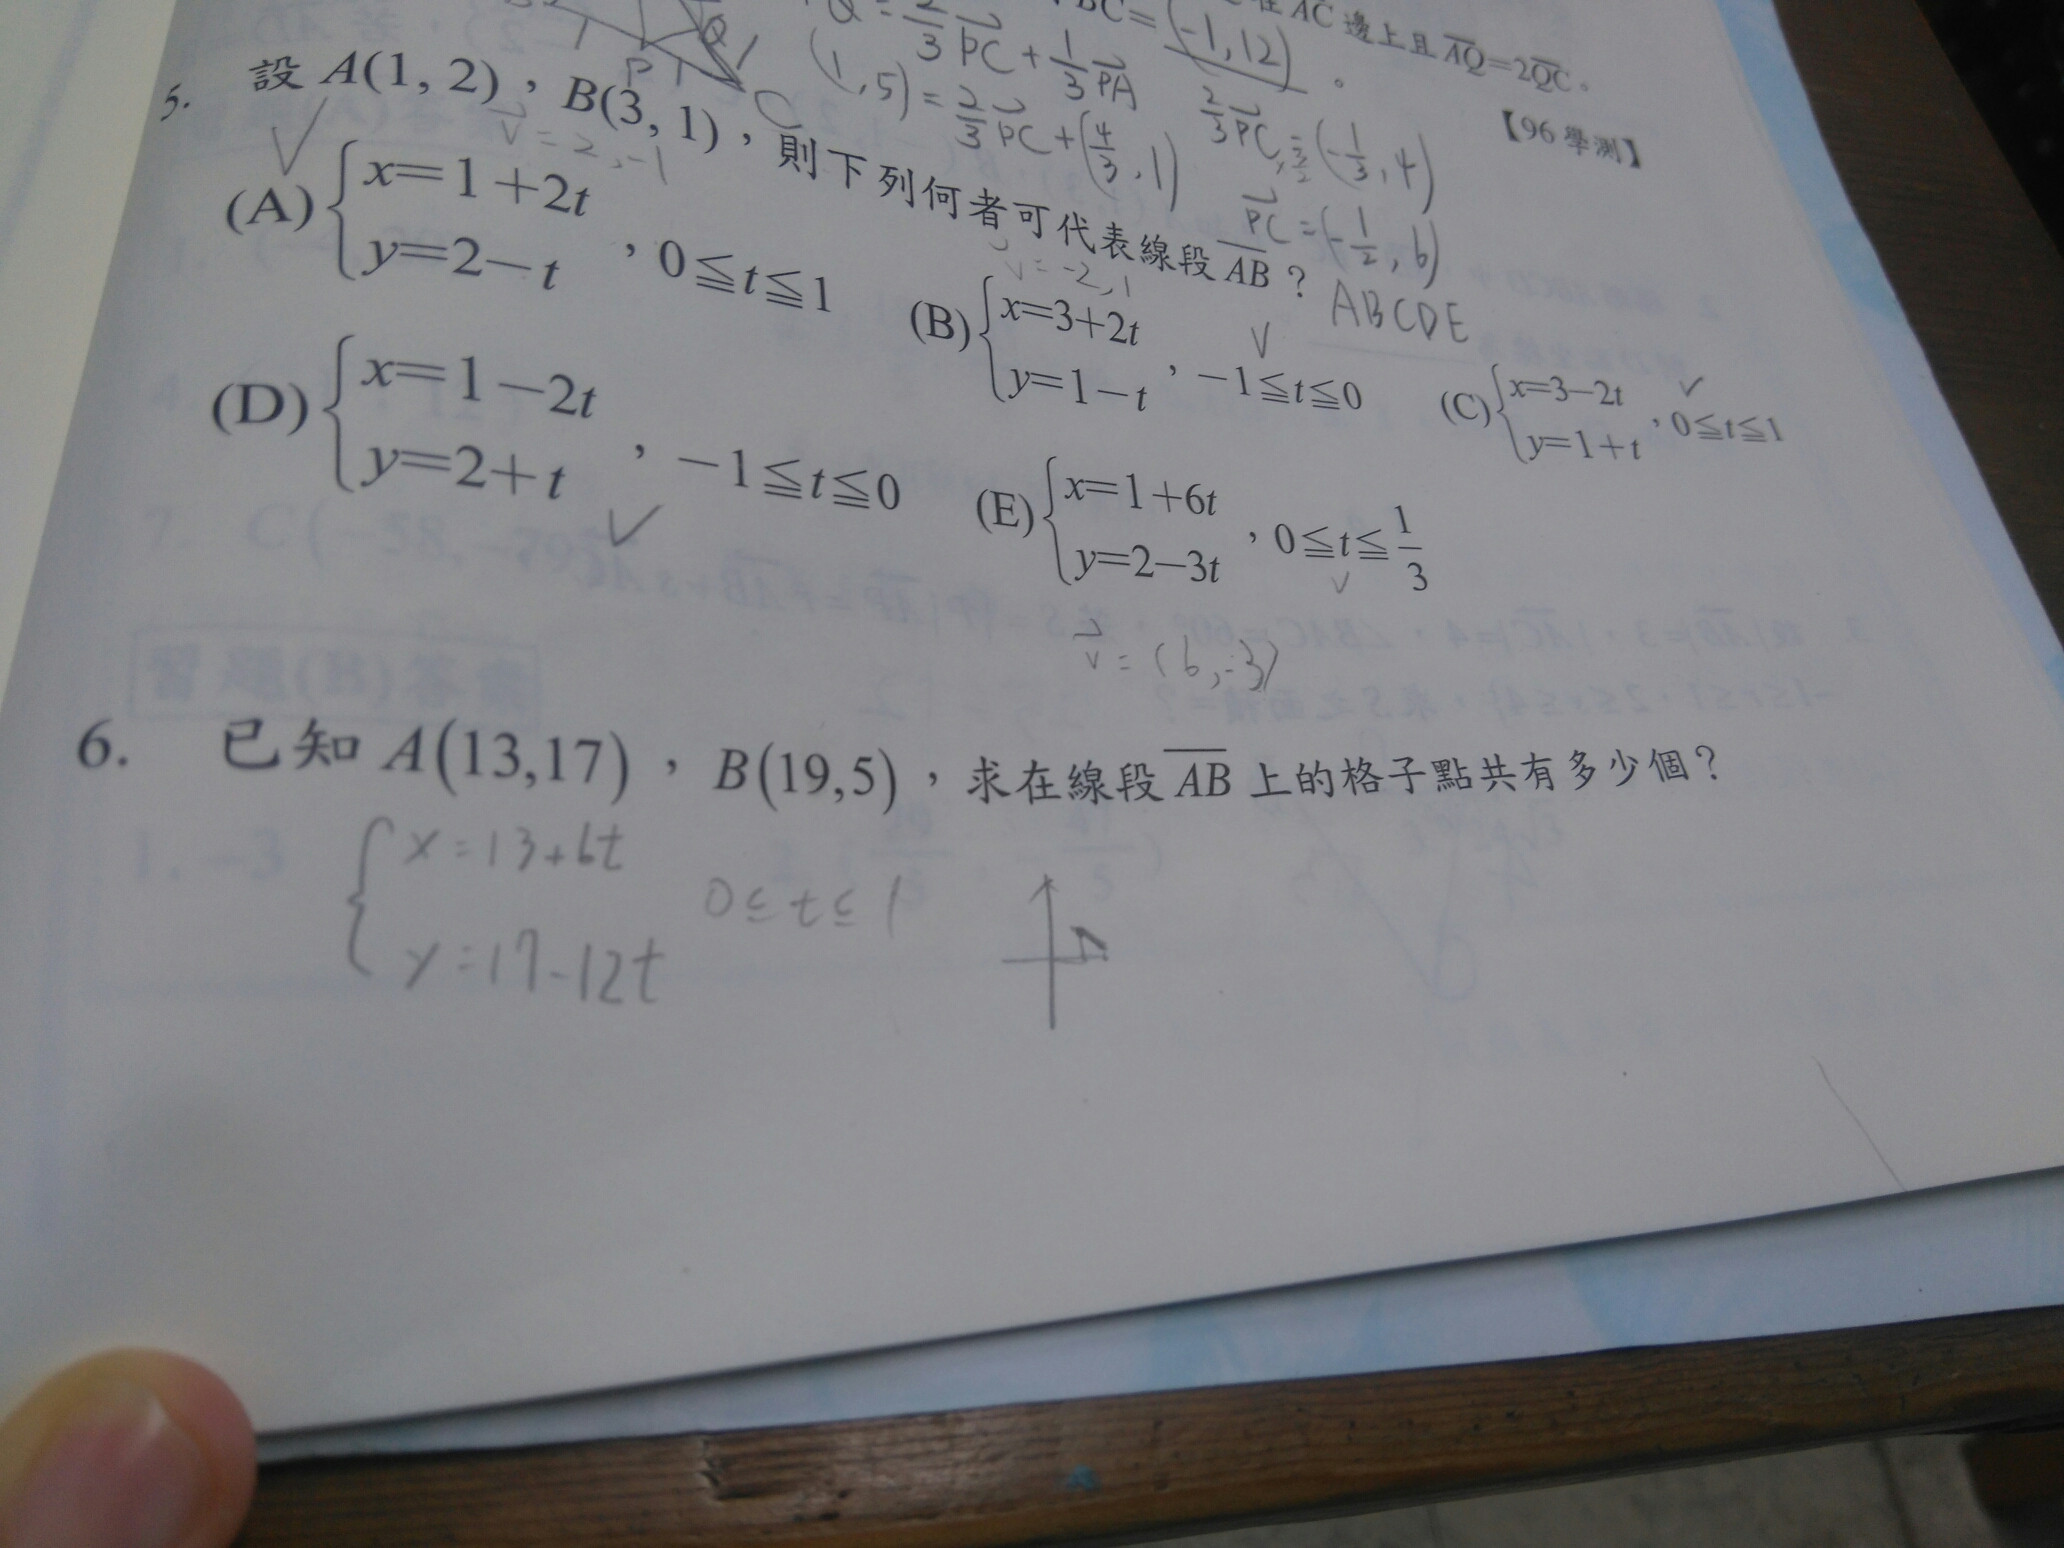 BC=(-1,12)。 在AC邊上且AQ=2QC。
Q=2/3PC+1/3PA
【96學測】
(1,5)=2/3PC+(4/3,1) 2/3PC=(-1/3,4)
PC=(-1/2,6)
5. 設A(1, 2),B(3, 1),則下列何者可代表線段AB?
v=2,-1
ABCDE
(A){x=1+2t
y=2-t ,0≦t≦1
v=-2,1
(B){x=3+2t
y=1-t ,-1≦t≦0
(C){x=3-2t
y=1+t ,0≦t≦1
(D){x=1-2t
y=2+t ,-1≦t≦0
(E){x=1+6t
y=2-3t ,0≦t≦1/3
v=(6,-3)
6. 已知A(13,17),B(19,5),求在線段AB上的格子點共有多少個?
{x=13+6t
y=17-12t 0≤t≤1